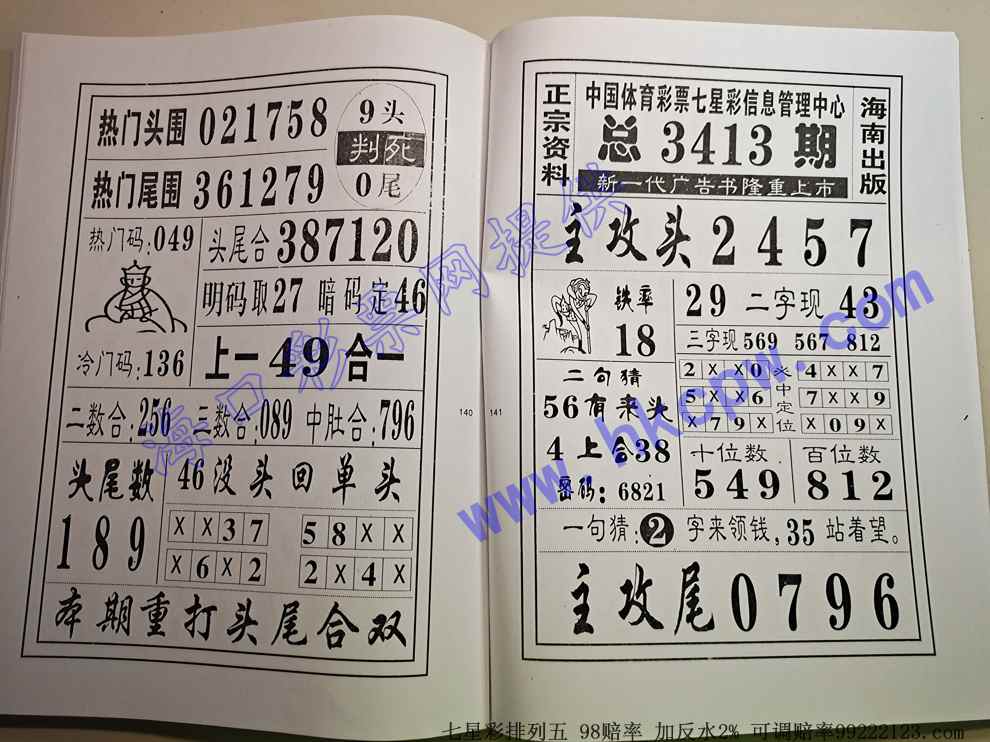 热门头围 021758
9头
判死
0尾
热门尾围 361279
热门码:049
头尾合 387120
明码取27 暗码定46
冷门码:136
上一49合一
二数合:256 三数合:089 中肚合:796
头尾数
189
46没头回单头
X X 3 7
5 8 X X
X 6 X 2
2 X 4 X
本期重打头尾合双
140
141
正宗资料
中国体育彩票七星彩信息管理中心
总3413期
新一代广告书隆重上市
海南出版
主攻头2457
铁率
18
29 二字现 43
三字现 569 567 812
2 X X 0
4 X X 7
5 X X 6
7 X X 9
X 7 9 X
X 0 9 X
中定位
二句猜
56有来头
4上合38
密码:6821
十位数
549
百位数
812
一句猜:2字来领钱,35站着望。
主攻尾0796
海口彩票网提供
www.hkcpw.com
七星彩排列五 98赔率 加反水2% 可调赔率99222123.com